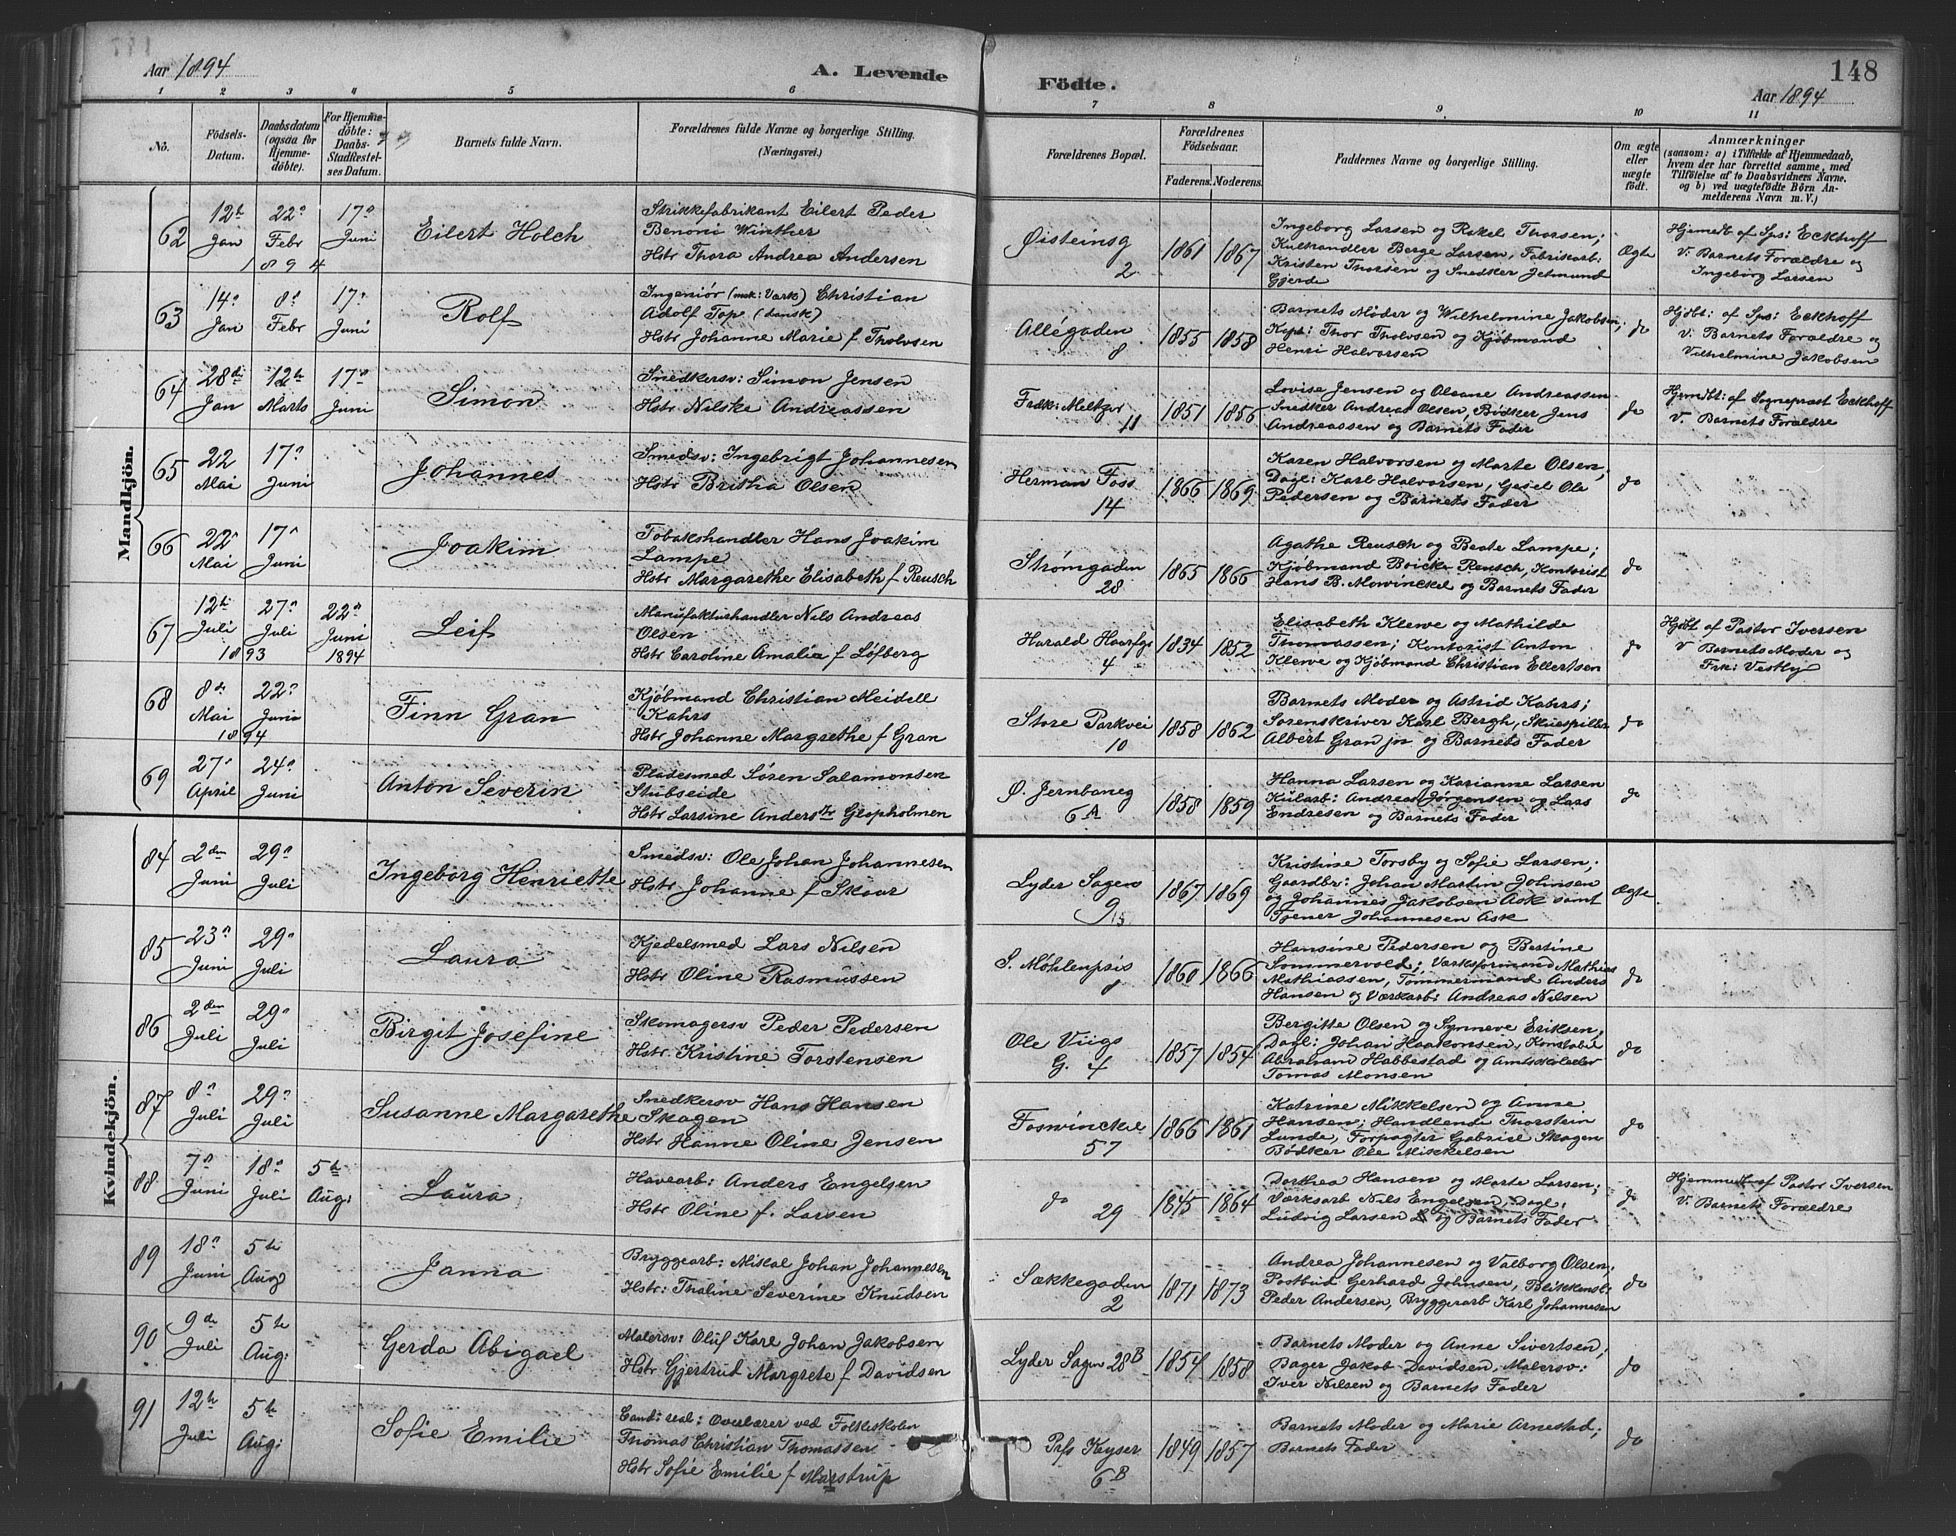 Aar 1894
A. Levende
Födte.
148
Aar 1894
1 2 3 4 5 6 7 8 9 10 11
No.
Födsels-Datum.
Daabsdatum (ogsaa for Hjemmedöbte).
For Hjemmedöbte: Daabs-Stadfæstelses Datum.
Barnets fulde Navn.
Forældrenes fulde Navne og borgerlige Stilling. (Næringsvei.)
Forældrenes Bopæl.
Forældrenes Födselsaar.
Faderens. Moderens.
Faddernes Navne og borgerlige Stilling.
Om ægte eller uægte födt.
Anmærkninger
(saasom: a) i Tilfælde af Hjemmedaab, hvem der har forrettet samme, med Tilföielse af to Daabsvidners Navne, og b) ved uægtefödte Börn Anmelderens Navn m. V.)
Mandkjön.
62 12te Jan 22de Febr 1894 17de Juni
Eilert Holch
Strikkefabrikant Eilert Peder
Benoni Winther
Hstr Thora Andrea Andersen
Øisteinsg 2
1861 1867
Ingeborg Larsen og Rakel Thorsen;
Kulhandler Berge Larsen, Fabrikarb:
Kristen Thorsen og Snedker Jetmund
Gjerde
Ægte
Hjemdbt af Sps: Eckhoff
V: Barnets Forældre og
Ingeborg Larsen
63 14de Jan 8de Febr 17de Juni
Rolf
Ingeniør (mek: Værk) Christian
Adolf Top (dansk)
Hstr Johanne Marie f Tholvsen
Allégaden 8
1855 1858
Barnets Moder og Wilhelmine Jakobsen;
Kapt: Thor Tholvsen og Kjøbmand
Henri Halvorsen
do
Hjdbt: af Sps: Eckhoff
V: Barnets Forældre og
Vilhelmine Jakobsen
64 28de Jan 12te Marts 17de Juni
Simon
Snedkersv: Simon Jensen
Hstr Nilske Andreassen
Fredk: Meltzer 11
1851 1856
Lovise Jensen og Oleane Andreassen
Snedker Andreas Olsen, Bødker Jens
Andreassen og Barnets Fader
do
Hjemdbt: af Sogneprest Eckhoff
V: Barnets Forældre
65 22 Mai 17de Juni
Johannes
Smedsv: Ingebrigt Johannesen
Hstr Britha Olsen
Herman Foss 14
1866 1869
Karen Halvorsen og Marte Olsen;
Dagl: Karl Halvorsen, Gesel Ole
Pedersen og Barnets Fader
do
66 22 Mai 17de Juni
Joakim
Tobakshandler Hans Joakim
Lampe
Hstr Margarethe Elisabeth f Reusch
Strømgaden 28
1865 1866
Agathe Reusch og Beate Lampe;
Kjøbmand Boicke Reusch, Kontorist
Hans B. Mowinckel og Barnets Fader
do
67 12te Juli 27de Juli 1893 22de Juni 1894
Leif
Manufakturhandler Nils Andreas
Olsen
Hstr Caroline Amalia f Løfberg
Harald Haarfgs 4
1834 1852
Elisabeth Klewe og Mathilde
Thomassen; Kontorist Anton
Klewe og Kjøbmand Christian Ellertsen
do
Hjdbt af Pastor Iversen
V Barnets Moder og
Frk: Vestby
68 8de Mai 22de Juni 1894
Finn Gran
Kjøbmand Christian Meidell
Kahrs
Hstr Johanne Margrethe f Gran
Store Parkvei 10
1858 1862
Barnets Moder og Astrid Kahrs;
Sorenskriver Karl Bergh, Skuespiller
Albert Gran jr og Barnets Fader
do
69 27de April 24de Juni
Anton Severin
Pladesmed Søren Salamonsen
Stubseide
Hstr Larsine Andersdtr Glopholmen
Ø. Jernbaneg 6A
1858 1859
Hanna Larsen og Karianne Larsen
Kularb: Andreas Jørgensen og Lars
Endresen og Barnets Fader
do
Kvindekjön.
84 2den Juni 29de Juli
Ingeborg Henriette
Smedsv: Ole Johan Johannesen
Hstr Johanne f Skaar
Lyder Sagens 9
1867 1869
Kristine Torsby og Sofie Larsen;
Gaardbr: Johan Martin Johnsen
og Johannes Jakobsen Ask samt
Tjener Johannesen Ask
Ægte
85 23de Juni 29de Juli
Laura
Kjedelsmed Lars Nilsen
Hstr Oline Rasmussen
S. Møhlenpris 8
1860 1866
Hansine Pedersen og Bertine
Sommervold; Værksformand Mathias
Mathiassen, Tømmermand Anders
Hansen og Værkarb: Andreas Nilsen
do
86 2den Juli 29de Juli
Birgit Josefine
Skomagersv Peder Pedersen
Hstr Kristine Torstensen
Ole Viigs G. 4
1857 1854
Bergitte Olsen og Synneve Eriksen,
Dagl: Johan Haakonsen, Konstabel
Abraham Habbestad og Amtsskoleelev
Tomas Monsen
do
87 8de Juli 29de Juli
Susanne Margarethe
Snedkersv Hans Hansen
Skagen
Hstr Hanne Oline Jensen
Foswinckel 57
1866 1861
Katrine Mikkelsen og Anne
Hansen; Handlende Thorstein
Lunde, Forpagter Gabriel Skagen
Bødker Ole Mikkelsen
do
88 7de Juni 18de Juli 5te Aug:
Laura
Havearb: Anders Engelsen
Hstr Oline f. Larsen
do 29
1845 1864
Dorthea Hansen og Marte Larsen;
Værksarb Nils Engelsen, Dagl,
Ludvig Larsen og Barnets Fader
do
Hjemmedbt af Pastor Iversen
V: Barnets Forældre
89 18de Juni 5te Aug
Janna
Bryggearb: Mikal Johan Johannesen
Hstr: Thaline Severine Knudsen
Sækkegaden 2
1871 1873
Andrea Johannesen og Valborg Olsen;
Postbud Gerhard Johnsen, Blikkensl:
Peder Andersen, Bryggearb Karl Johannesen
do
90 9de Juli 5te Aug:
Gerda Abigael
Malersv: Oluf Karl Johan Jakobsen
Hstr Gjertrud Margrete f Davidsen
Lyder Sagen 28B
1854 1858
Barnets Moder og Anne Sivertsen;
Bager Jakob Davidsen, Malersv:
Iver Nilsen og Barnets Fader
do
91 12te Juli 5te Aug:
Sofie Emilie
Cand: real: Overlærer ved Folkeskolen
Thomas Christian Thomassen
Hstr Sofie Emilie f Marstrup
Prfs Keyser 6B
1849 1857
Barnets Moder og Marie Arnestad;
Barnets Fader
do